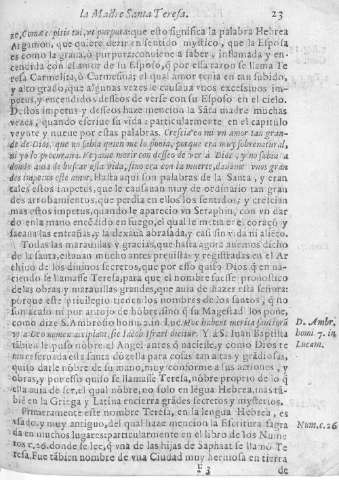 la Madre Santa Teresa. 23
Argamon, que quiere dezir en sentido mystico, que la Esposa
es como la grana, ò purpura: conviene a saber, inflamada y en-
cendida con el amor de su Esposo, q̃ por essa razon se llama Te
resa Carmelita, ò Carmesina: el qual amor tenia en tan subido,
y alto grado, que algunas vezes le causaua vnos excessiuos im-
petus, y encendidos desseos de verse con su Esposo en el cielo.
Destos impetus y desseos haze mencion la Santa madre muchas
vezes, quando escriue su vida: particularmente en el capitulo
veynte y nueue por estas palabras. Crecia en mi vn amor tan gran-
de de Dios, que no sabia quien me lo ponia, porque era muy sobrenatural,
ni yo lo procuraua. Veyame morir con desseo de ver à Dios, y no sabia a
donde auia de buscar esta vida, sino era con la muerte, dauanme vnos gran
des impetus este amor. Hasta aqui son palabras de la Santa, y eran
tales estos impetus, que le causauan muy de ordinario tan gran
des arrobamientos, que perdia en ellos los sentidos, y crecian
mas estos impetus, quando le aparecio vn Seraphin, con vn dar
do en la mano encẽdido en fuego, el qual le metia por el coraçõ y
hasta las entrañas, y la dexaua abrasada, y casi sin vida ni aliẽto.
Todas las marauillas y gracias, que hasta agora auemos dicho
de la santa, estauan mucho antes preuistas y registradas en el Ar
chiuo de los diuinos secretos, que por esso quiso Dios q̃ en na-
ciendo se llamasse Teresa, para que el nombre fuesse pronostico
de las obras y marauillas grandes, que auia de hazer esta señora:
porque este priuilegio tienen los nombres de los santos, q̃ no
son acaso ni por antojo de hõbre, sino q̃ su Magestad los pone,
como dize S. Ambrosio homi. 2. in Luc. Hoc habent merita sanctorũ
vt a Deo nomen accipiant, Y à S. Iuan Baptista
tãbien le puso nõbre el Angel antes q̃ naciesse, y como Dios te
nia reseruada esta santa dõzella para cosas tan altas y grãdiosas,
quiso darle nõbre de su mano, muy conforme a sus acciones, y
obras, y por esso quiso se llamasse Teresa, nõbre proprio de lo q̃
ella auia de ser, el qual nõbre, no solo en lẽgua Hebrea, mas tã-
bien en la Griega y Latina encierra grãdes secretos y mysterios.
Primeramente este nombre Teresa, en la lengua Hebrea, es
vsado, y muy antiguo, del qual haze mencion la Escritura sagra
da en muchos lugares: particularmente en el libro de los Nume
ros c. 26. donde se lee, q̃ vna de las hijas de Saphaat se llamò Te
resa. Fue tãbien nombre de vna Ciudad muy hermosa en tierra
F 3 de
D. Ambr.
homi. 2. in
Lucam.
Num. c. 26